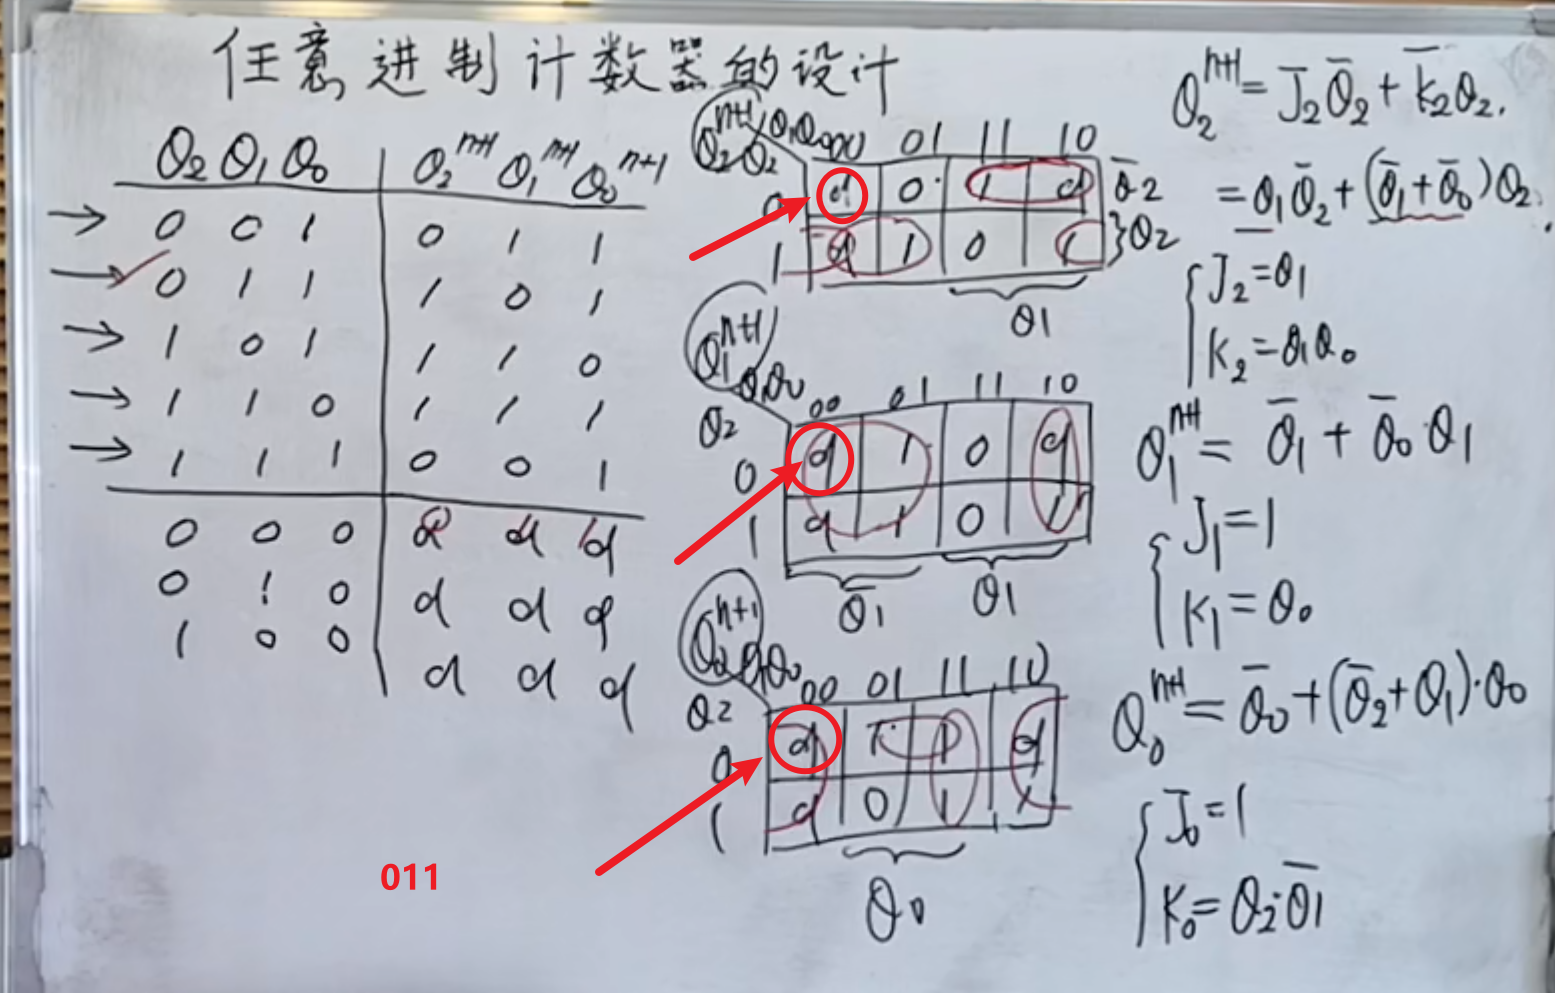 任意进制计数器的设计
Q2 Q1 Q0 | Q2^{n+1} Q1^{n+1} Q0^{n+1}
→ 0 0 1 | 0 1 1
→ 0 1 1 | 1 0 1
→ 1 0 1 | 1 1 0
→ 1 1 0 | 1 1 1
→ 1 1 1 | 0 0 1
0 0 0 | d d d
0 1 0 | d d d
1 0 0 | d d d
011
Q2^{n+1} Q1Q0 00 01 11 10
Q2
0 d 0 1 d Q̅2
1 d 1 0 1 }Q2
Q1
Q1^{n+1} Q1Q0 00 01 11 10
Q2
0 d 1 0 d
1 d 1 0 1
Q̅1 Q1
Q0^{n+1} Q1Q0 00 01 11 10
Q2
0 d 1 1 d
1 d 0 1 1
Q0
Q2^{n+1} = J2Q̅2 + K̅2Q2.
= Q1Q̅2 + (Q̅1+Q̅0)Q2.
J2 = Q1
K2 = Q1Q0
Q1^{n+1} = Q̅1 + Q̅0·Q1
J1 = 1
K1 = Q0
Q0^{n+1} = Q̅0 + (Q̅2+Q1)·Q0
J0 = 1
K0 = Q2·Q̅1